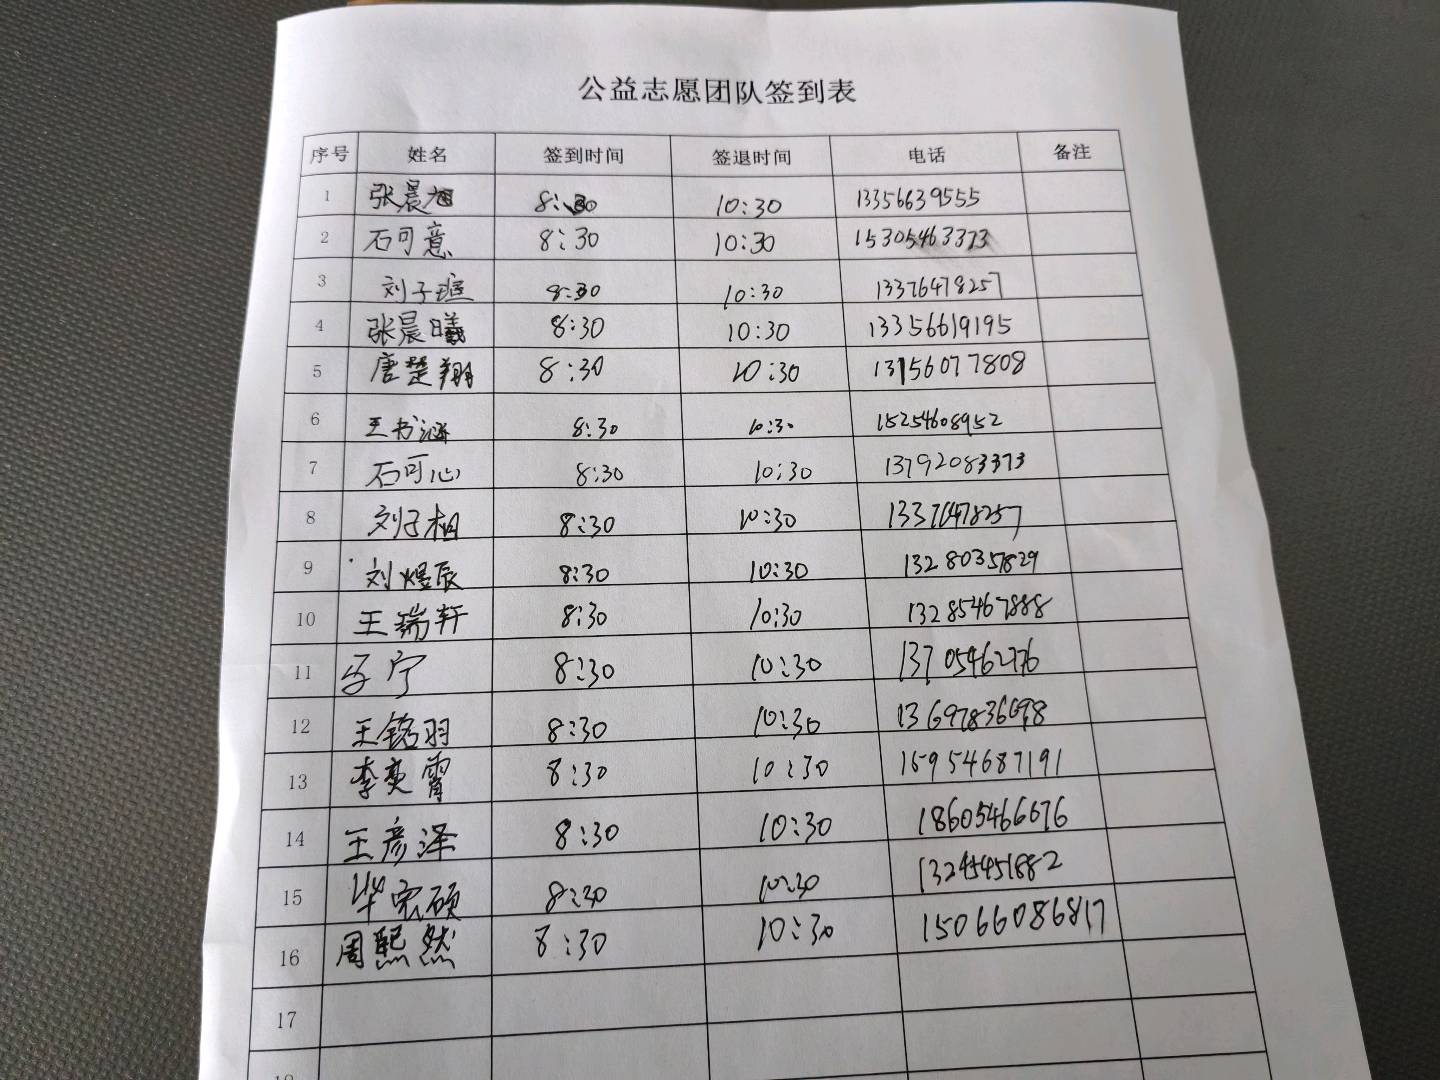 公益志愿团队签到表
序号 姓名 签到时间 签退时间 电话 备注
1 张晨旭 8:30 10:30 13356639555
2 石可意 8:30 10:30 15305463373
3 刘子瑄 8:30 10:30 13376478257
4 张晨曦 8:30 10:30 13356619195
5 唐楚翔 8:30 10:30 13156077808
6 王书涵 8:30 10:30 15254608952
7 石可心 8:30 10:30 13792083373
8 刘子相 8:30 10:30 13376478257
9 刘煜辰 8:30 10:30 13280357829
10 王瑞轩 8:30 10:30 13285467888
11 宁 8:30 10:30 13705462776
12 王铭羽 8:30 10:30 13697836098
13 李奕霄 8:30 10:30 15954687191
14 王彦泽 8:30 10:30 18605466676
15 毕宏硕 8:30 10:30
16 周熙然 8:30 10:30 15066086817
17